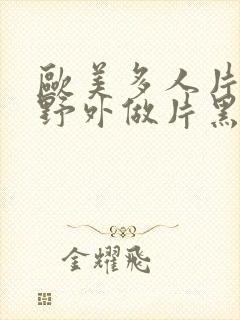 歐美多人片
野外做片黑
金耀飛